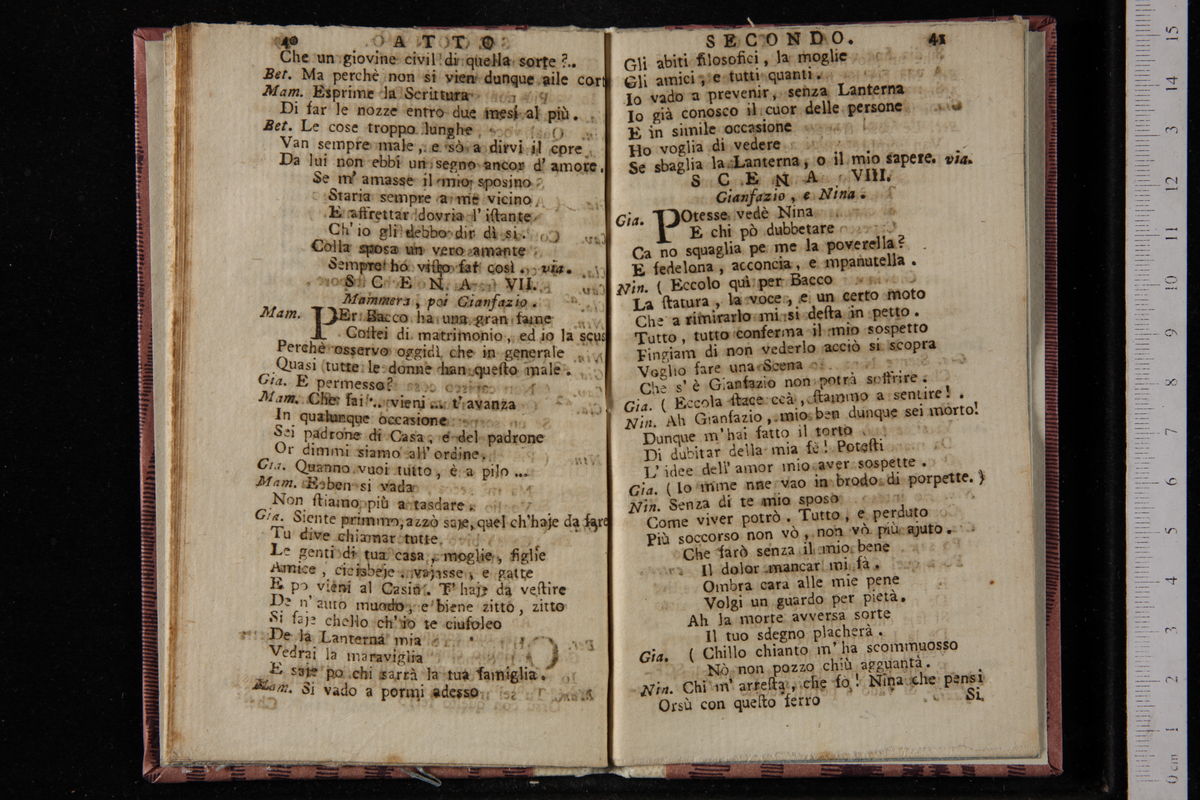 40 ATTO
Che un giovine civil di quella sorte ?..
Bet. Ma perchè non si vien dunque alle cort
Mam. Esprime la Scrittura
Di far le nozze entro due mesi al più.
Bet. Le cose troppo lunghe
Van sempre male, e sò a dirvi il core
Da lui non ebbi un segno ancor d' amore.
Se m' amasse il mio sposino
Staria sempre a me vicino
E affrettar dovria l' iſtante
Ch' io gli debbo dir di si.
Colla sposa un vero amante
Sempre hò viſto far così. via.
SCENA VII.
Mammera, poi Gianfazio.
Mam. PEr Bacco ha una gran fame
Coſtei di matrimonio, ed io la scus
Perchè osservo oggidì che in generale
Quasi tutte le donne han queſto male.
Gia. E permesso?
Mam. Che fai .. vieni ... t' avanza
In qualunque occasione
Sei padrone di Casa, e del padrone
Or dimmi siamo all' ordine.
Gia. Quanno vuoi tutto, è a pilo ...
Mam. E ben si vada
Non ſtiamo più a tasdare.
Gia. Siente primmo, azzò saje, quel ch'haje da fare
Tu dive chiamar tutte
Le genti di tua casa, moglie, figlie
Amice, cicisbeje, vajasse, e gatte
E po vieni al Casin. T' haje da veſtire
De n' auto mundo, e biene zitto, zitto
Si faje chello ch' io te ciufoleo
De la Lanterna mia
Vedrai la maraviglia
E saje po chi sarrà la tua famiglia.
Mam. Si vado a pormi adesso
SECONDO. 41
Gli abiti filosofici, la moglie
Gli amici, e tutti quanti.
Io vado a prevenir, senza Lanterna
Io già conosco il cuor delle persone
E in simile occasione
Ho voglia di vedere
Se sbaglia la Lanterna, o il mio sapere. via.
SCENA VIII.
Gianfazio, e Nina.
Gia. POtesse vedè Nina
E chi pò dubbetare
Ca no squaglia pe me la poverella?
E fedelona, acconcia, e mpanutella.
Nin. ( Eccolo quì per Bacco
La ſtatura, la voce, e un certo moto
Che a rimirarlo mi si deſta in petto.
Tutto, tutto conferma il mio sospetto
Fingiam di non vederlo acciò si scopra
Voglio fare una Scena
Che s' è Gianfazio non potrà soffrire.
Gia. ( Eccola ſtace ccà, ſtammo a sentire! .
Nin. Ah Gianfazio, mio ben dunque sei morto!
Dunque m' hai fatto il torto
Di dubitar della mia fè! Poteſti
L' idee dell' amor mio aver sospette.
Gia. ( Io mme nne vao in brodo di porpette. )
Nin. Senza di te mio sposo
Come viver potrò. Tutto, e perduto
Più soccorso non vò, non vò più ajuto.
Che farò senza il mio bene
Il dolor mancar mi fà.
Ombra cara alle mie pene
Volgi un guardo per pietà.
Ah la morte avversa sorte
Il tuo sdegno placherà.
Gia. ( Chillo chianto m' ha scommuosso
Nò non pozzo chiù agguantà.
Nin. Chi m' arreſta, che fo! Nina che pensi
Orsù con queſto ferro
Si.
0 cm 1 2 3 4 5 6 7 8 9 10 11 12 13 14 15